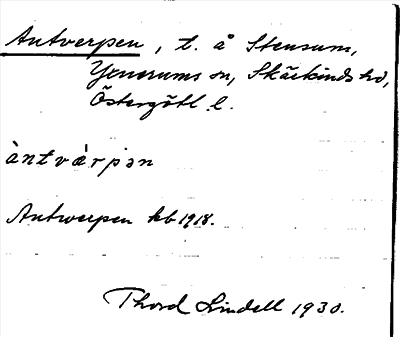 Antverpen, t. å Stensum,
Yxnerums sn, Skärkinds hd,
Östergötl. l.
àntvárpən
Antwerpen kb 1918.
Thord Lindell 1930.